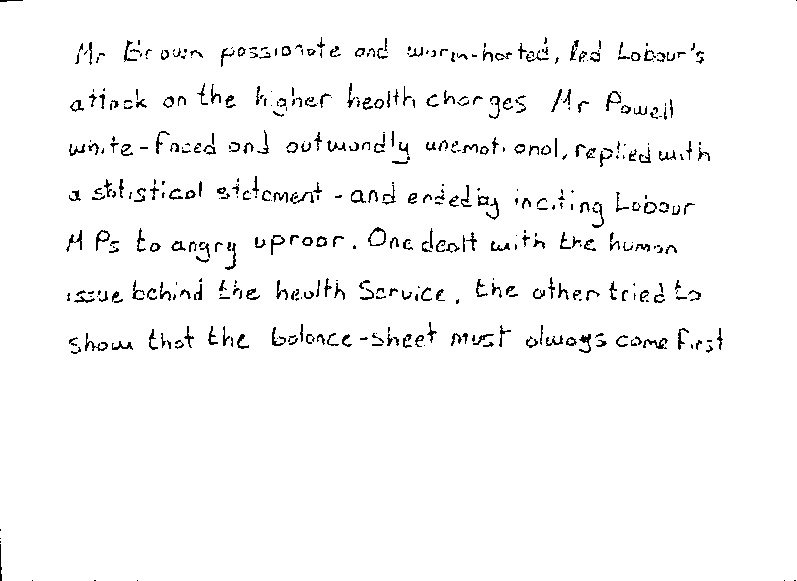 Mr Brown passionate and warm-harted, led Labour's
attack on the higher health charges Mr Powell
white-faced and outwandly unemotional, replied with
a statistical statement - and ended by inciting Labour
MPs to angry uproar. One dealt with the human
issue behind the health Service, the other tried to
show that the balance-sheet must always come first